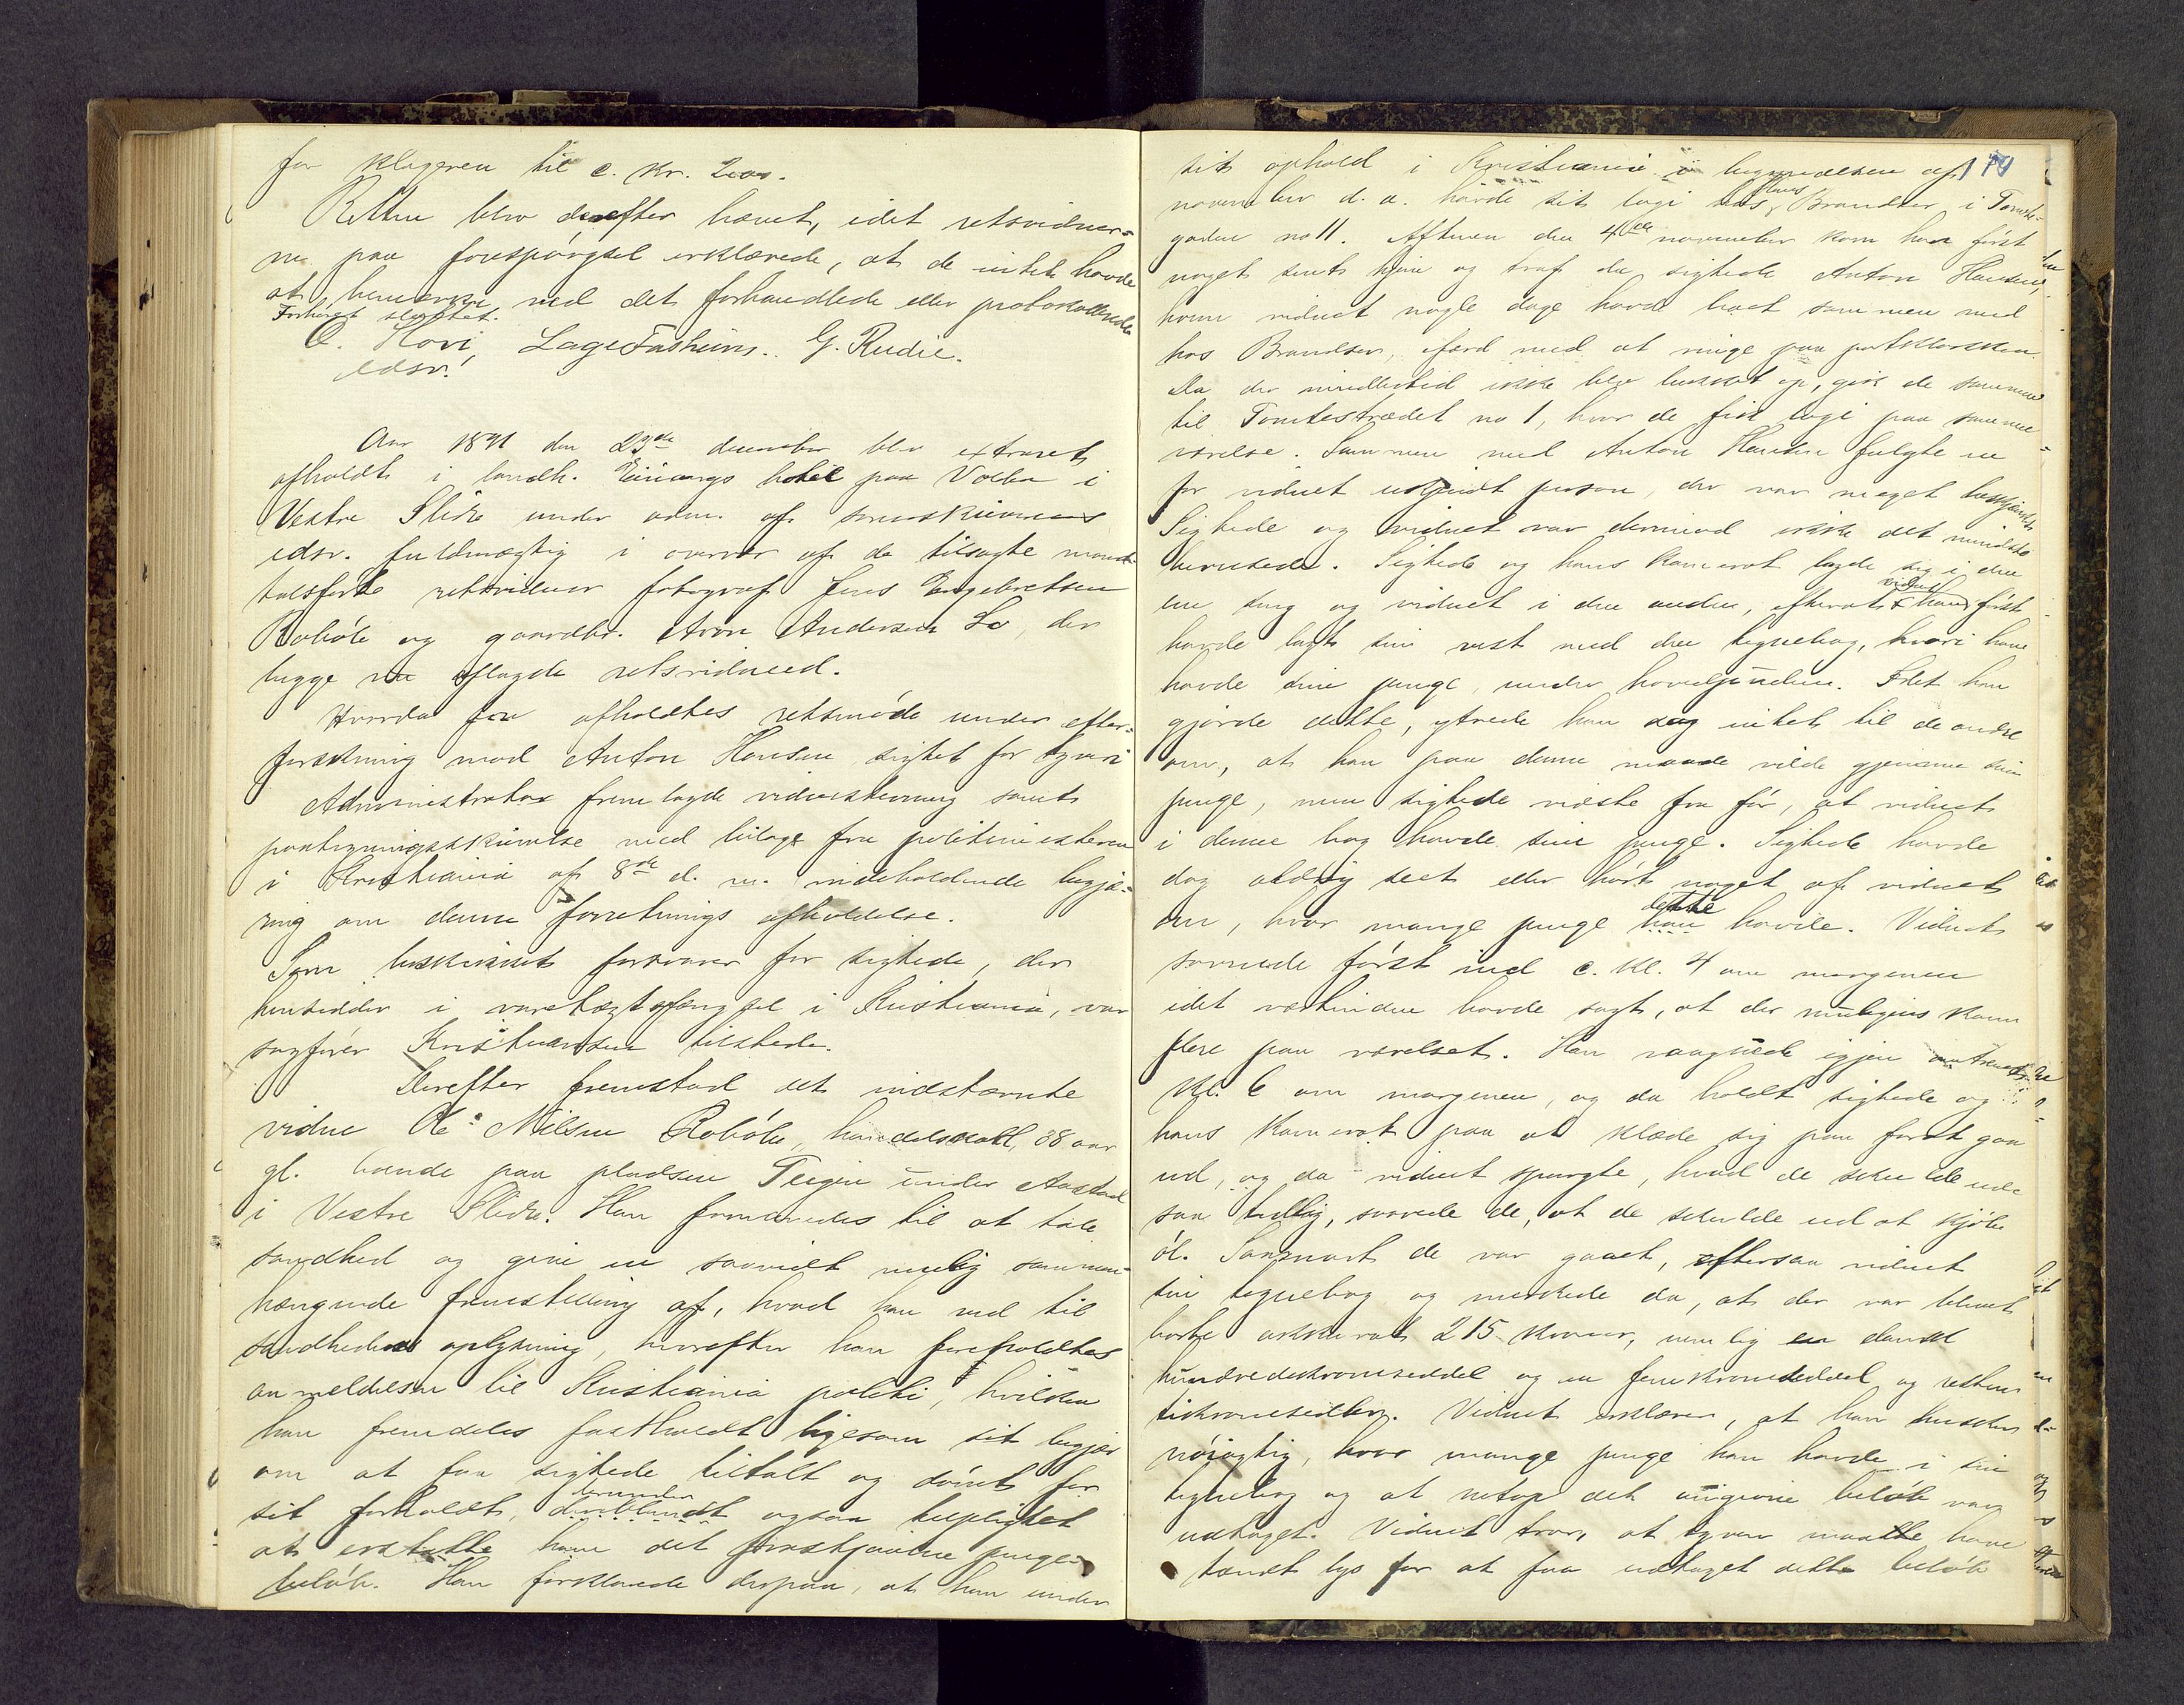 for klageren til c. kr. 200.
Retten blev derefter hævet, idet retsvidner=
ne paa forespørgsel erklærede, at de intet havde
at bemærke ved det forhandlede eller protokollerede
Forhøret sluttet.
O. Hovi, Lage Fosheim. G. Rudie.
edsv.
Aar 1891 den 23de december blev extraret
afholdt i landh. Einangs hotel paa Volbu i
Vestre Slidre under adm. af sorenskriverens
edsv. fuldmægtig i overvær af de tilsagte mand=
talsførte retsvidner fotograf Jens Engebretsen
Robøle og gaardbr. Arne Andersen Lo, der
begge nu aflagde retsvidneed.
Hvorda for afholdtes retsmøde under efter=
forskning mod Anton Hansen sigtet for tyveri
Administrator fremlagde vidnestevning samt
paategningsskrivelse med bilage fra politimesteren
i Kristiania af 8de d. m. indeholdende begjæ=
ring om denne forretnings afholdelse.
Som beskikket forsvarer for sigtede, der
hensidder i varetægtsfængsel i Kristiania, var
sagfører Kristiansen tilstede.
Derefter fremstod det indstævnte
vidne Ole Nilsen Robøle, handelskarl, 38 aar
gl. boende paa pladsen Teigen under Aastad
i Vestre Slidre. Han formanedes til at tale
sandhed og give en saavidt mulig sammen=
hængende fremstilling af, hvad han ved til
sandhedens oplysning, hvorefter han foreholdtes
anmeldelsen til Kristiania politi, hvilken
han fremdeles fastholdt ligesom sit begjær
om at faa sigtede tiltalt og dømt for
sit forhold, deriblandt herunder ogsaa tilpligtet
at erstatte ham det frastjaalne penge=
beløb. Han forklarede derpaa, at han under
sit ophold i Kristiania i begyndelsen af 174
november d. a. havde sit logi hos Hans Brandser i Tomte=
gaden no 11. Aftenen den 4de november kom han først
noget sent hjem og traf da sigtede Anton Hansen,
hvem vidnet nogle dage havde boet sammen med
hos Brandser, ifærd med at ringe paa portklokken.
Da der imidlertid ikke blev lukket op, gik de sammen
til Tomtestrædet no 1, hvor de fik logi paa samme
værelse. Sammen med Anton Hansen fulgte en
for vidnet ukjendt person, der var meget beskjænket
Sigtede og vidnet var derimod ikke det mindste
berusede. Sigtede og hans kamerat lagde sig i den
ene seng og vidnet i den anden, efterat han vidnet først
havde lagt sin vest med den tegnebog, hvori han
havde sine penge, under hovedpuden. Idet han
gjorde dette, ytrede han sag intet til de andre
om, at han paa denne maade vilde gjemme sine
penge, men sigtede vidste fra før, at vidnet
i denne bog havde sine penge. Sigtede havde
dog aldrig seet eller hørt noget af vidnet
om, hvor mange penge han dette havde. Vidnet
sovnede først ind c. kl. 4 om morgenen
idet værtinden havde sagt, at der muligens kom
flere paa værelset. Han vaagnede igjen omtrent
kl. 6 om morgenen, og da holdt sigtede og
hans kamerat paa at klæde sig paa for at gaa
ud, og da vidnet spurgte, hvad de skulde ude
saa tidlig, svarede de, at de skulde ud at kjøbe
øl. Saasnart de var gaaet, eftersaa vidnet
sin tegnebog og mærkede da, at der var blevet
borte akkurat 215 kroner, nemlig en dansk
hundredekroneseddel og en femkroneseddel og resten
tikronesedler. Vidnet erklærer, at han husker
nøiagtig, hvor mange penge han havde i sin
tegnebog og at netop det angivne beløb var
udtaget. Vidnet tror, at tyven maatte have
tændt lys for at faa udtaget dette beløb